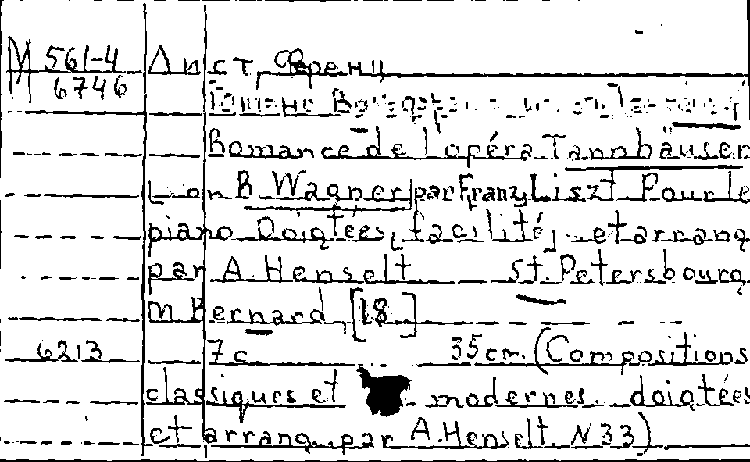 М 561-4 Лист, Ференц
6746
Romance de l'opéra Tannhäuser
R Wagner par Franz Liszt Pour le
piano Doigtées, facilité, et arrang
par A. Henselt St. Petersbourg
M Bernard, [18 ]
6213 7 c 35 cm. (Compositions
classiques et modernes doigtées
et arrang. par A. Henselt N 33)